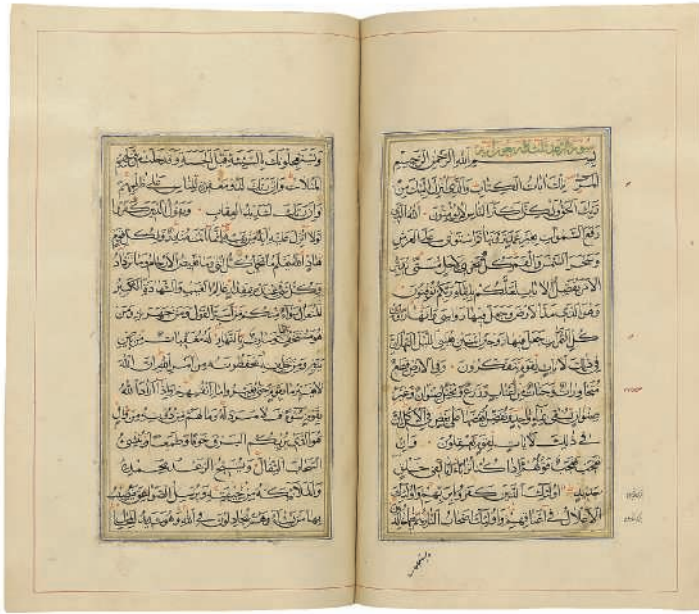 سورة الرعد
بسم الله الرحمن الرحيم
المر تلك ايات الكتاب والذي انزل اليك من
ربك الحق ولكن اكثر الناس لا يؤمنون الله الذي
رفع السموات بغير عمد ترونها ثم استوى على العرش
وسخر الشمس والقمر كل يجري لاجل مسمى يدبر
الامر يفصل الايات لعلكم بلقاء ربكم توقنون
وهو الذي مد الارض وجعل فيها رواسي وانهارا ومن
كل الثمرات جعل فيها زوجين اثنين يغشي الليل النهار ان
في ذلك لايات لقوم يتفكرون وفي الارض قطع
متجاورات وجنات من اعناب وزرع ونخيل صنوان وغير
صنوان يسقى بماء واحد ونفضل بعضها على بعض في الاكل ان
في ذلك لايات لقوم يعقلون وان
تعجب فعجب قولهم ءاذا كنا ترابا ءانا لفي خلق
جديد اولئك الذين كفروا بربهم واولئك
الاغلال في اعناقهم واولئك اصحاب النار هم فيها خالدون
ويستعجلونك
ويستعجلونك بالسيئة قبل الحسنة وقد خلت من قبلهم
المثلات وان ربك لذو مغفرة للناس على ظلمهم
وان ربك لشديد العقاب ويقول الذين كفروا
لولا انزل عليه اية من ربه انما انت منذر ولكل قوم
هاد الله يعلم ما تحمل كل انثى وما تغيض الارحام وما تزداد
وكل شيء عنده بمقدار عالم الغيب والشهادة الكبير
المتعال سواء منكم من اسر القول ومن جهر به ومن
هو مستخف بالليل وسارب بالنهار له معقبات من بين
يديه ومن خلفه يحفظونه من امر الله ان الله
لا يغير ما بقوم حتى يغيروا ما بانفسهم واذا اراد الله
بقوم سوءا فلا مرد له وما لهم من دونه من وال
هو الذي يريكم البرق خوفا وطمعا وينشئ
السحاب الثقال ويسبح الرعد بحمده
والملائكة من خيفته ويرسل الصواعق فيصيب
بها من يشاء وهم يجادلون في الله وهو شديد المحال